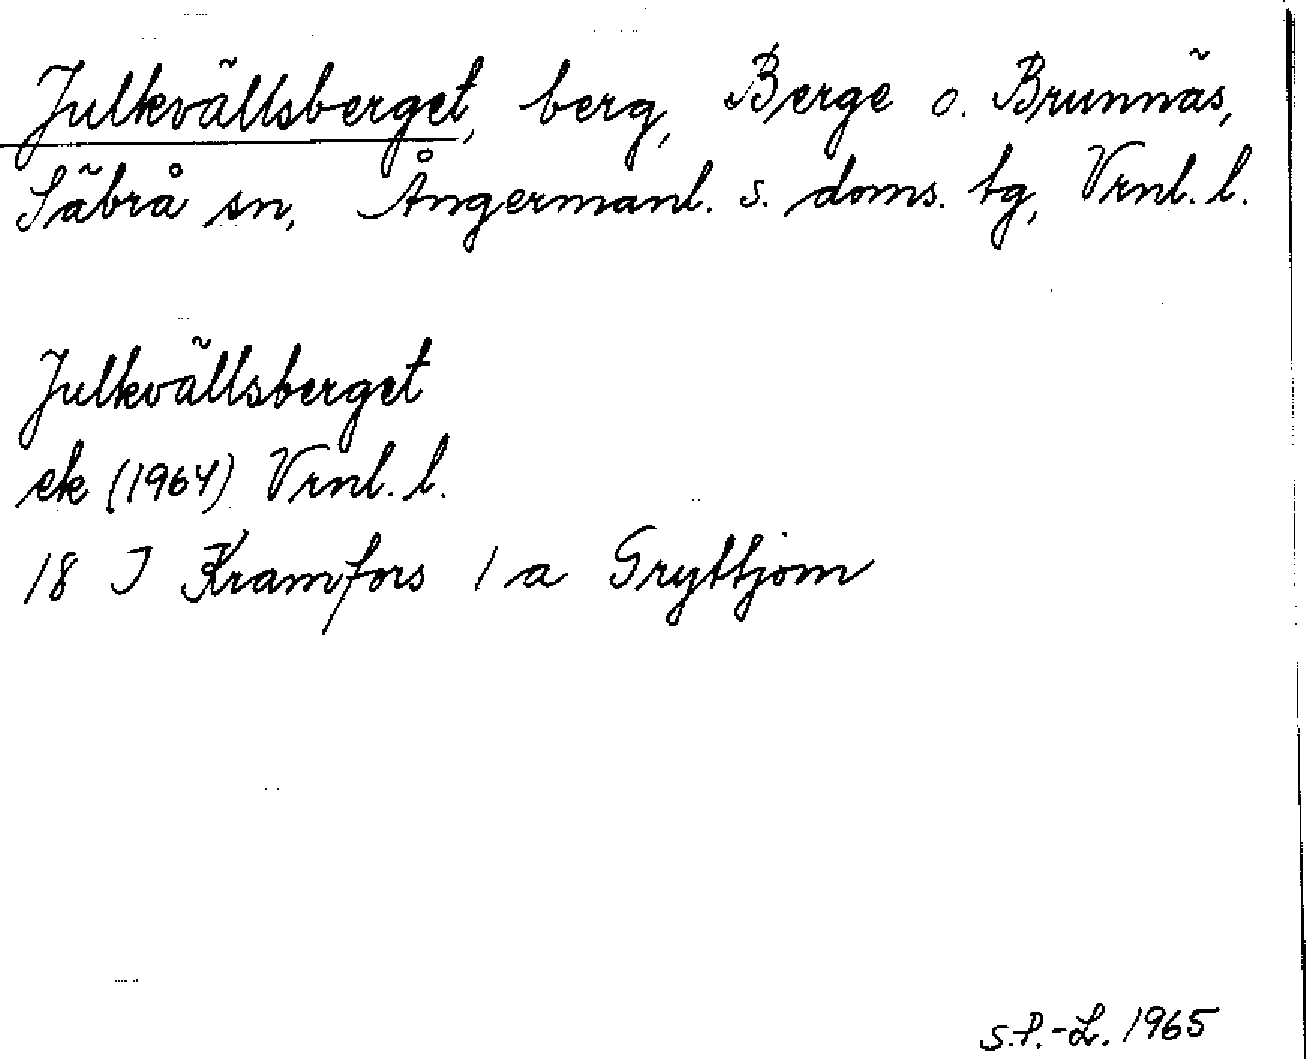 Julkvällsberget, berg, Berge o. Brunnäs,
Säbrå sn, Ångermanl. s. doms. tg, Vrnl. l.
Julkvällsberget
ek (1964) Vrnl. l.
18 I Kramfors 1 a Gryttjom
S.P.-L. 1965